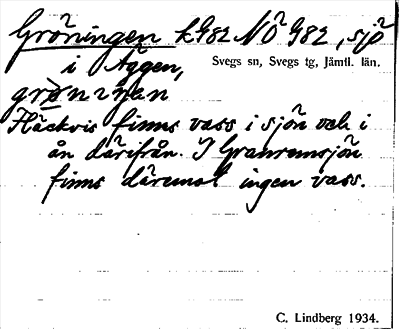 Gröningen k982 NÖ 982, sjö
i Äggen,
Svegs sn, Svegs tg, Jämtl. län.
Fläckvis finns vass i sjön och i
ån därifrån. I Granrumsjön
finns däremot ingen vass.
C. Lindberg 1934.